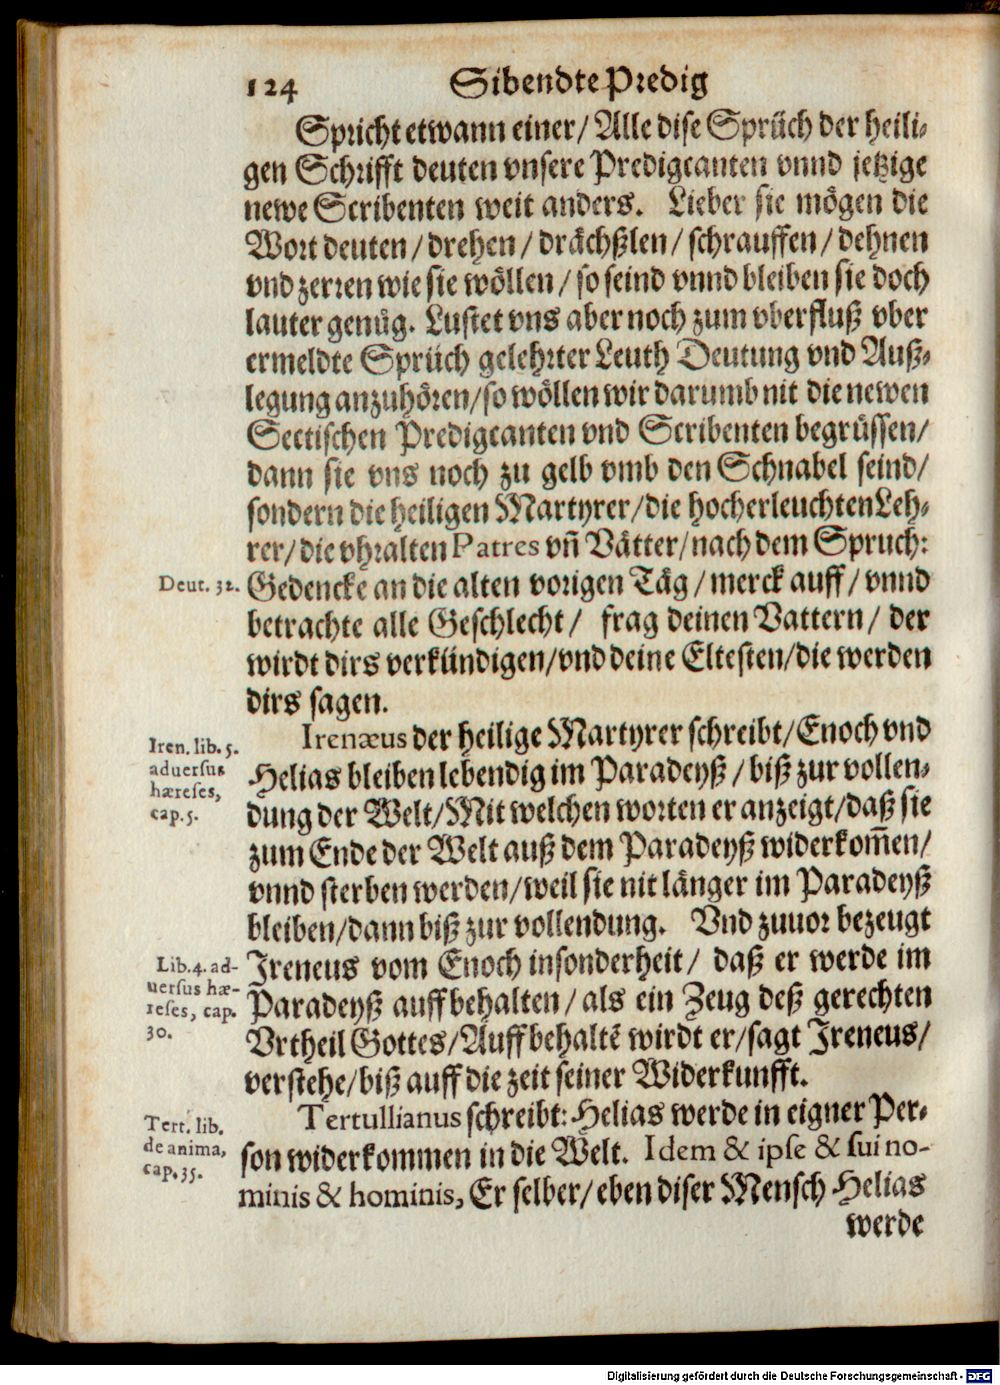 124 Sibendte Predig
Spricht etwann einer/ Alle dise Sprüch der heili-
gen Schrifft deuten vnsere Predigcanten vnnd jetzige
newe Scribenten weit anders. Lieber sie mögen die
Wort deuten/ drehen/ drächßlen/ schrauffen/ dehnen
vnd zerren wie sie wöllen/ so seind vnnd bleiben sie doch
lauter genůg. Lustet vns aber noch zum vberfluß vber
ermeldte Sprüch gelehrter Leuth Deutung vnd Auß-
legung anzuhören/ so wöllen wir darumb nit die newen
Sectischen Predigcanten vnd Scribenten begrüssen/
dann sie vns noch zu gelb vmb den Schnabel seind/
sondern die heiligen Martyrer/ die hocherleuchten Leh-
rer/ die vhralten Patres vñ Vätter/ nach dem Spruch:
Deut. 32. Gedencke an die alten vorigen Täg/ merck auff/ vnnd
betrachte alle Geschlecht/ frag deinen Vattern/ der
wirdt dirs verkündigen/ vnd deine Eltesten/ die werden
dirs sagen.
Iren. lib. 5.
aduersus
hæreses,
cap. 5.
Irenæus der heilige Martyrer schreibt/ Enoch vnd
Helias bleiben lebendig im Paradeyß/ biß zur vollen-
dung der Welt/ Mit welchen worten er anzeigt/ daß sie
zum Ende der Welt auß dem Paradeyß widerkom̃en/
vnnd sterben werden/ weil sie nit länger im Paradeyß
bleiben/ dann biß zur vollendung. Vnd zuuor bezeugt
Lib. 4. ad-
uersus hæ-
reses, cap.
30.
Jreneus vom Enoch insonderheit/ daß er werde im
Paradeyß auffbehalten/ als ein Zeug deß gerechten
Vrtheil Gottes/ Auffbehaltẽ wirdt er/ sagt Jreneus/
verstehe/ biß auff die zeit seiner Widerkunfft.
Tert. lib.
de anima,
cap. 35.
Tertullianus schreibt: Helias werde in eigner Per-
son widerkommen in die Welt. Idem & ipse & sui no-
minis & hominis, Er selber/ eben diser Mensch Helias
werde
Digitalisierung gefördert durch die Deutsche Forschungsgemeinschaft - DFG